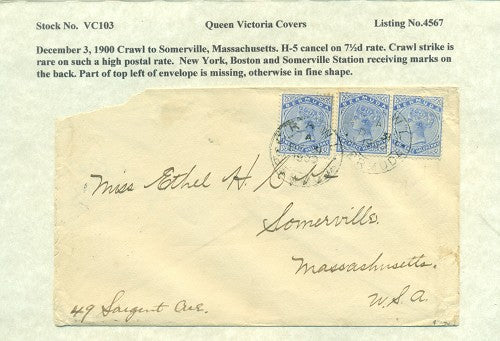 Stock No. VC103 Queen Victoria Covers Listing No.4567
December 3, 1900 Crawl to Somerville, Massachusetts. H-5 cancel on 7½d rate. Crawl strike is
rare on such a high postal rate. New York, Boston and Somerville Station receiving marks on
the back. Part of top left of envelope is missing, otherwise in fine shape.
BERMUDA BERMUDA BERMUDA
Miss Ethel H. Cobb
Somerville.
Massachusetts.
U.S.A.
49 Sargent Ave.